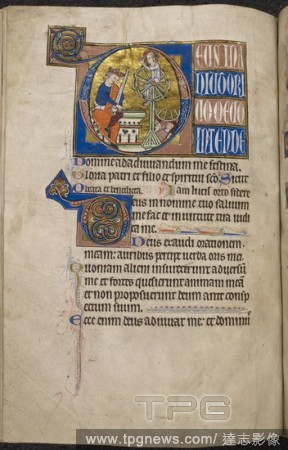 EUS IN A
DIUTORI
UM MEU
INTENDE
Domine ad adiuvandum me festina.
Gloria patri et filio et spiritui sco. Sicut
Iam lucis orto sidere
eus in nomine tuo salvum
me fac et in virtute tua iudi
ca me.
Deus exaudi orationem
meam: auribus percipe verba oris mei.
Quoniam alieni insurrexerunt adversu
me et fortes quesierunt animam mea
et non proposuerunt deum ante consp
ectum suum.
Ecce enim deus adiuvat me: et domin
TPG
www.tpgnews.com/ 達志影像